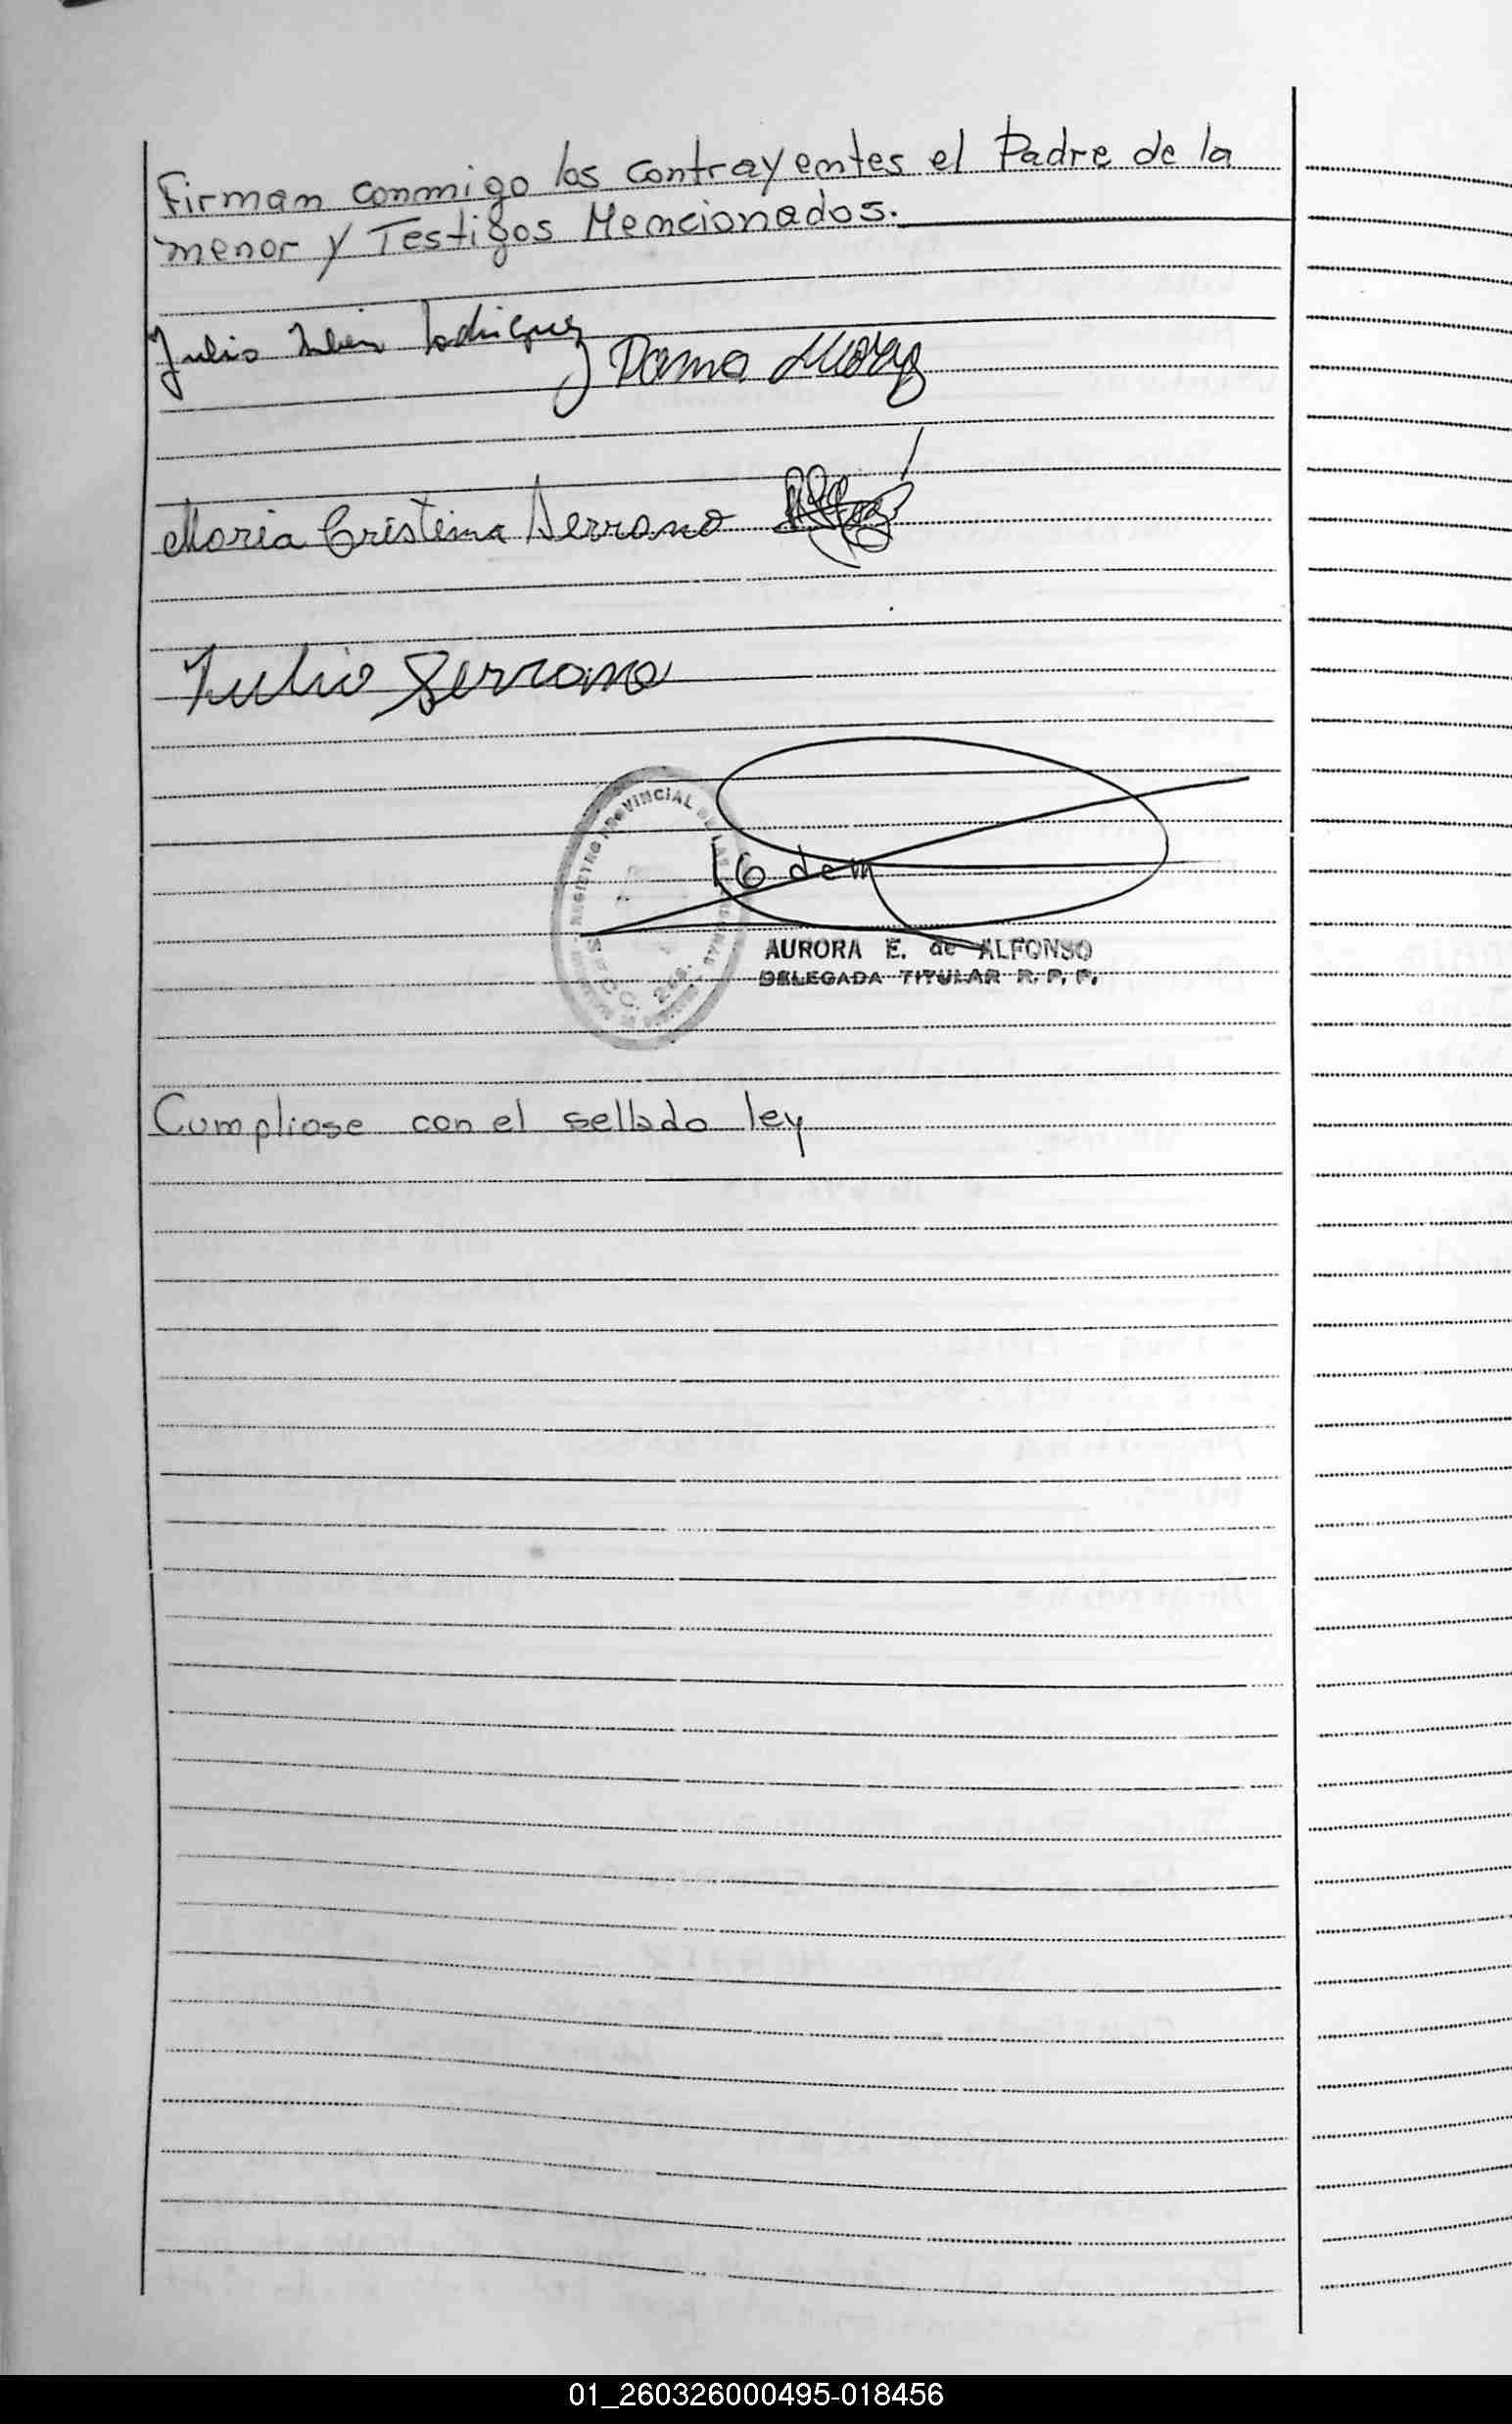 Firman conmigo los contrayentes el Padre de la
menor y Testigos Mencionados.
Julio Rubén Rodriguez
Maria Cristina Serrano
Julio Serrano
REGISTRO PROVINCIAL DE LAS
SECC.
AURORA E. de ALFONSO
DELEGADA TITULAR R. P. P.
Cumpliose con el sellado ley
01_260326000495-018456